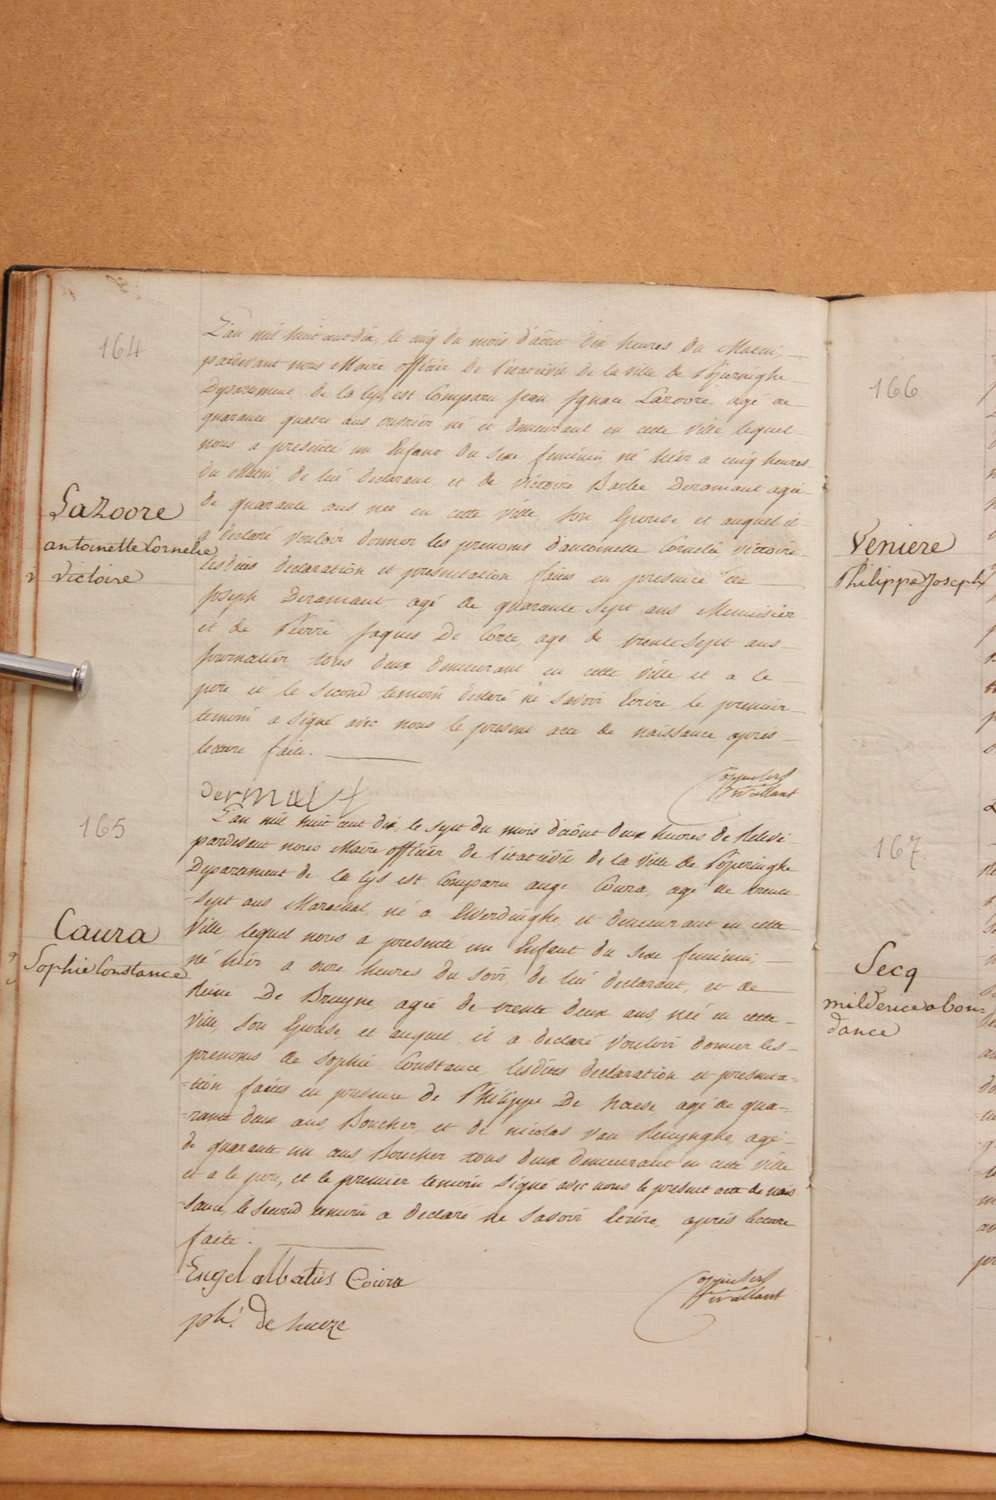 164
L'an mil huit cent dix, le cinq du mois d'août dix heures du Matin
pardevant nous Maire officier de l'état civil de la ville de Poperinghe
Département de la Lys est Comparu Jean Ignace Lazoore agé de
quarante quatre ans ouvrier né et demeurant en cette Ville lequel
nous a presenté un Enfant du Sexe feminin né hier a cinq heures
du Matin de lui declarant et de Victoire Barbe Deramaut agée
de quarante ans née en cette Ville son Epouse et auquel il
a declaré Vouloir donner les prenoms d'antoinette Cornelie victoire
lesdites declaration et presentation faites en presence de
Joseph Deramaut agé de quarante Sept ans Menuisier
et de Pierre Jaques De Corte, agé de trente Sept ans
Journalier tous deux demeurant en cette Ville et a le
pere et le Second temoin declaré ne Savoir Ecrire le premier
temoin a Signé avec nous le present acte de naissance après
lecture faite.
LaZoore
antoinette Cornelie
victoire
165
L'an mil huit cent dix, le sept du mois d'août deux heures de Relevé
pardevant nous Maire officier de l'état civil de la Ville de Poperinghe
Département de la Lys est Comparu ange Coura, agé de trente
-sept ans Marechal, né a Elverdinghe et demeurant en cette
Ville lequel nous a presenté un Enfant du Sexe feminin
né hier a onze heures du Soir, de lui declarant, et de
Reine De Bruyne agée de trente deux ans née en cette
Ville, Son Epouse, et auquel il a declaré Vouloir donner les
prenoms de Sophie Constance, lesdites declaration et presenta-
-tion faites en presence de Philippe De haese agé de qua-
-rante deux ans Boucher, et de nicolas Van Renynghe agé
de quarante un ans Boucher tous deux demeurant en cette Ville
et a le pere, et le premier temoin Signé avec nous le present acte de nais
sance, le Second temoin a declaré ne Savoir Ecrire, après lecture
faite.
Caura
Sophie Constance
Engel albertus Coura
ph: de
166
Veniere
Philippe Joseph
167
Secq
dance